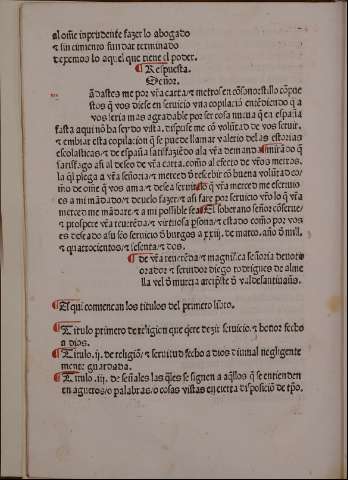 al ome inprudente fazer lo abogado
& sin cimiento fundar terminado
dexemos lo aquel que tiene el poder.
¶ Respuesta.
Señor.
ādastes me por vr̄a carta/ & metros en cōsonos
q̄ vos diese en seruicio vna copilaciō entēdiendo q̄ a
vos seria mas agradable por ser cosa nueua que en españa
fasta aqui nō ha seydo vista. dispuse me cō volūtad de vos seruir.
& embiar esta copilaciō q̄ se puede llamar valerio de las estorias
escolasticas/ & de españa satisfaziēdo a la vr̄a demanda
satisfago asi al deseo de vr̄a carta. cōmo al efecto de vr̄os metros.
la q̄l plega a vr̄a señoria/ & merced de rescebir cō buena volūtad co/
mo de ome q̄ vos ama/ & desea seruir q̄ vr̄a merced me escriuio
es a mi mādado/ & deuelo fazer/ & asi fare por seruicio vr̄o lo q̄ vr̄a
merced me mādare/ & a mi posible sea ¶ El soberano señor cōserue/
& prospere vr̄a reuerēda/ & virtuosa psona/ & estado como por vos
es deseado a su seruicio dō burgos a xxiij. de março. año d̄ mill.
& quatrocientos/ & sesenta/ & dos.
¶ de vr̄a reuerēda/ & magnifica señoria deuoto
orador & seruidor diego rodrigues de alme
lla vel d̄ murcia arcip̄ste d̄ valdesantiuañes.
¶ E aqui comiençan los titulos del primero libro.
¶ Titulo primero de religion que q̄ere dezir seruicio/ & honor fecho
a dios.
¶ Titulo .ij. de religiō/ & seruitud fecho a dios diuinal negligente
mente guardada.
¶ Titulo .iij. de señales las q̄les se siguen a aq̄llos q̄ se entienden
en agueros/ o palabras/ o cosas vistas en cierta disposiciō de tp̄o.